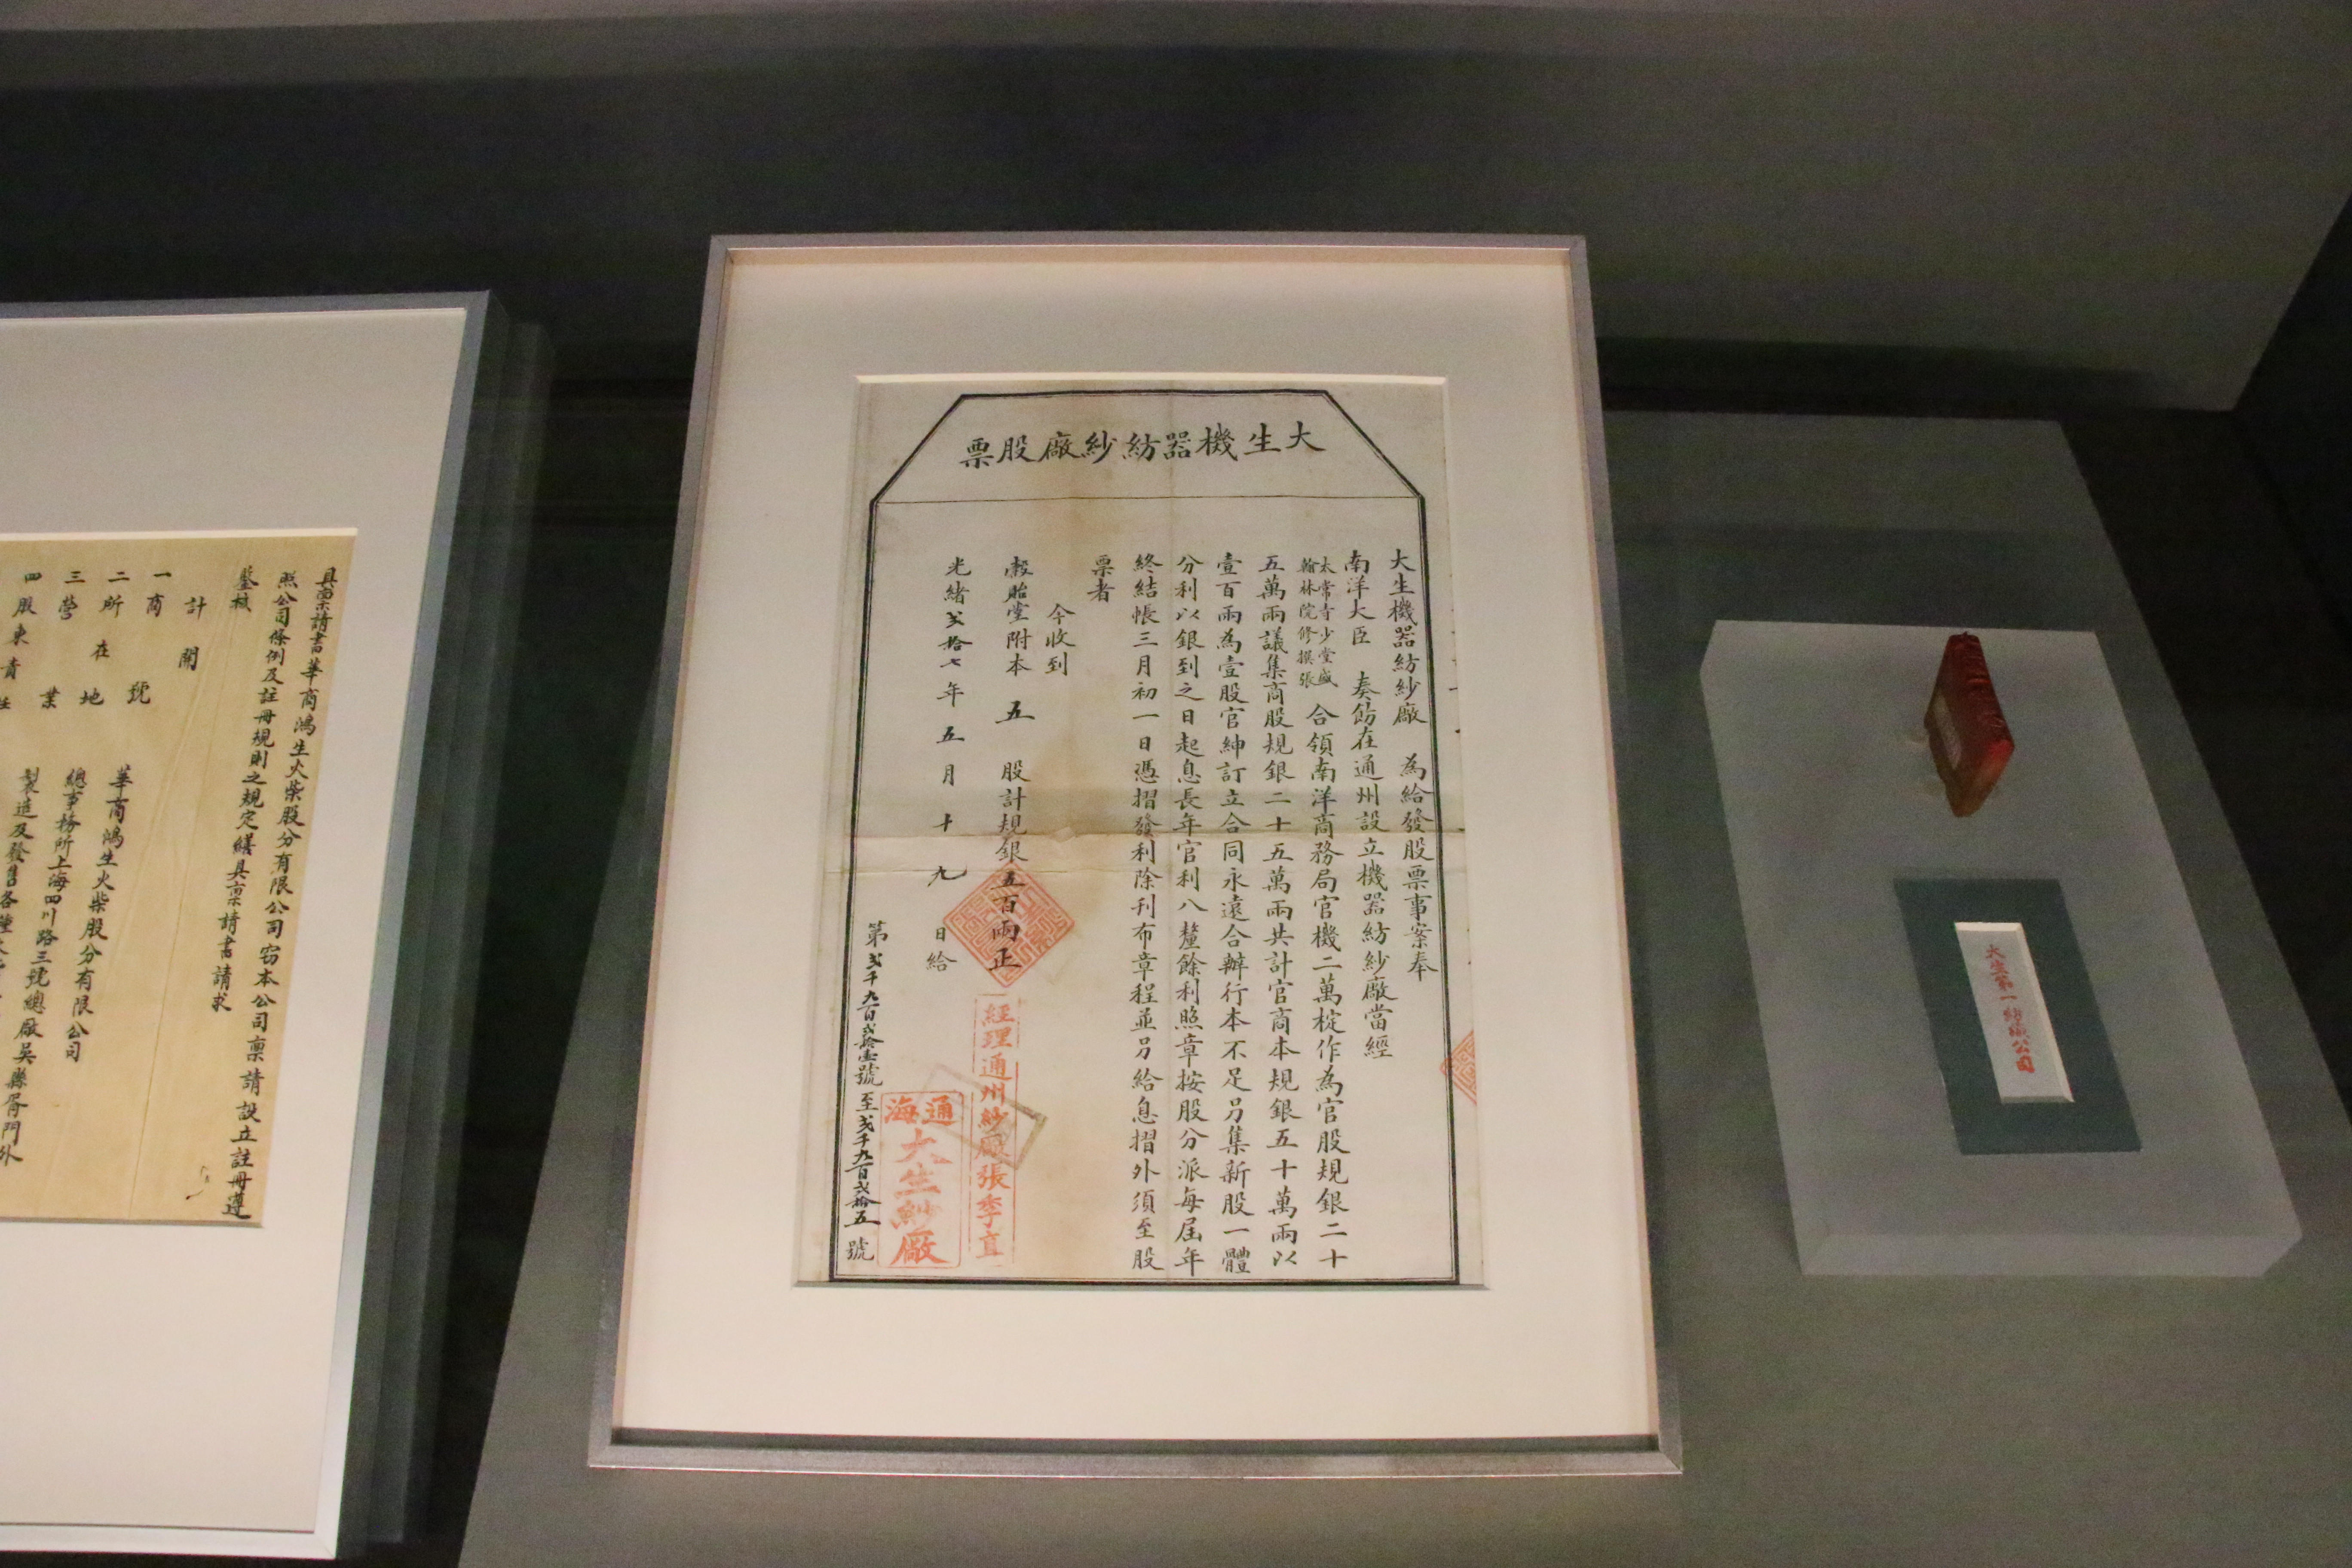 大生機器紡紗廠股票
大生機器紡紗廠 為給發股票事案奉
南洋大臣 奏飭在通州設立機器紡紗廠當經
太常寺少堂盛
翰林院修撰張
合領南洋商務局官機二萬椗作為官股規銀二十
五萬兩議集商股規銀二十五萬兩共計官商本規銀五十萬兩以
壹百兩為壹股官紳訂立合同永遠合辦行本不足另集新股一體
分利以銀到之日起息長年官利八釐餘利照章按股分派每屆年
終結帳三月初一日憑摺發利除刊布章程並另給息摺外須至股
票者
今收到
穀貽堂附本 五 股計規銀五百兩正
光緒弍拾七年五月十九日給
第弍千九百弍拾壹號至弍千九百弍拾五號
經理通州紗廠張季直
通海
大生紗廠
大生第一紡織公司
具稟請書華商鴻生火柴股分有限公司窃本公司稟請設立註冊遵
照公司條例及註冊規則之規定繕具稟請書請求
鑒核
計開
一商號 華商鴻生火柴股分有限公司
二所在地 總事務所上海四川路三號總廠吳縣胥門外
三營業 製造及發售各種
四股東責任